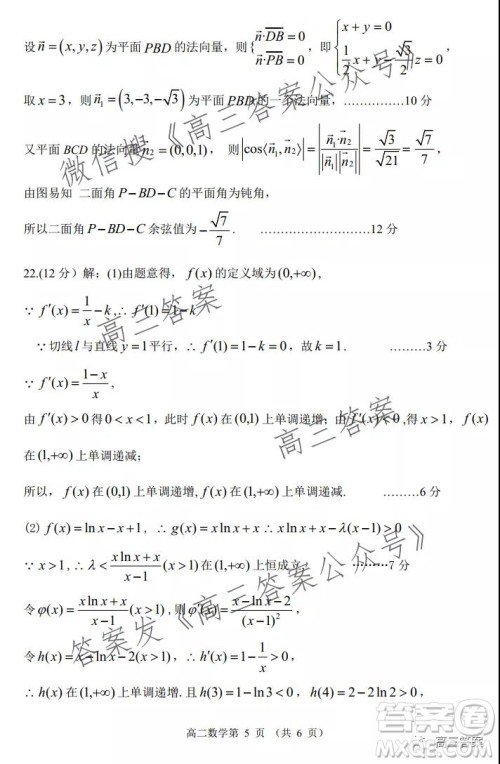 设 n⃗ = (x, y, z) 为平面 PBD 的法向量，则 { n⃗·DB⃗ = 0, n⃗·PB⃗ = 0 ，即 { x + y = 0, (1/2)x + y − (√3/2)z = 0 ，
取 x = 3，则 n⃗₁ = (3, −3, −√3) 为平面 PBD 的一个法向量，……………10 分
又平面 BCD 的法向量 n⃗₂ = (0,0,1)， 则 |cos⟨n⃗₁, n⃗₂⟩| = |n⃗₁·n⃗₂ / |n⃗₁||n⃗₂|| = √3/√21 = √7/7，
由图易知 二面角 P−BD−C 的平面角为钝角，
所以二面角 P−BD−C 余弦值为 −√7/7 . ……………………12 分
22.(12 分）解：(1)由题意得， f(x) 的定义域为 (0,+∞)，
∵ f′(x) = 1/x − k, ∴ f′(1) = 1 − k
∵切线 l 与直线 y = 1 平行，∴ f′(1) = 1 − k = 0，故 k = 1 . ………3 分
∵ f′(x) = (1−x)/x，
由 f′(x) > 0 得 0 < x < 1，此时 f(x) 在 (0,1) 上单调递增；由 f′(x) < 0 ,得 x > 1，f(x)
在 (1,+∞) 上单调递减；
所以， f(x) 在 (0,1) 上单调递增, f(x) 在 (1,+∞) 上单调递减. ………6 分
⑵ f(x) = ln x − x + 1, ∴ g(x) = x ln x + x − λ(x−1) > 0
∵ x > 1, ∴ λ < (x ln x + x)/(x−1) (x > 1) 在 (1,+∞) 上恒成立. ………7 分
令 φ(x) = (x ln x + x)/(x−1) (x > 1)，则 φ′(x) = (x − ln x − 2)/(x−1)²，
令 h(x) = x − ln x − 2(x > 1)， ∴ h′(x) = 1 − 1/x > 0，
∴ h(x) 在 (1,+∞) 上单调递增. ∵ h(3) = 1 − ln 3 < 0， h(4) = 2 − 2 ln 2 > 0，
高二数学第 5 页 （共 6 页）
微信搜《高三答案公众号》
高三答案
高三答案
答案发《高三答案公众号》
高三答案
答案圈
MXQE.COM